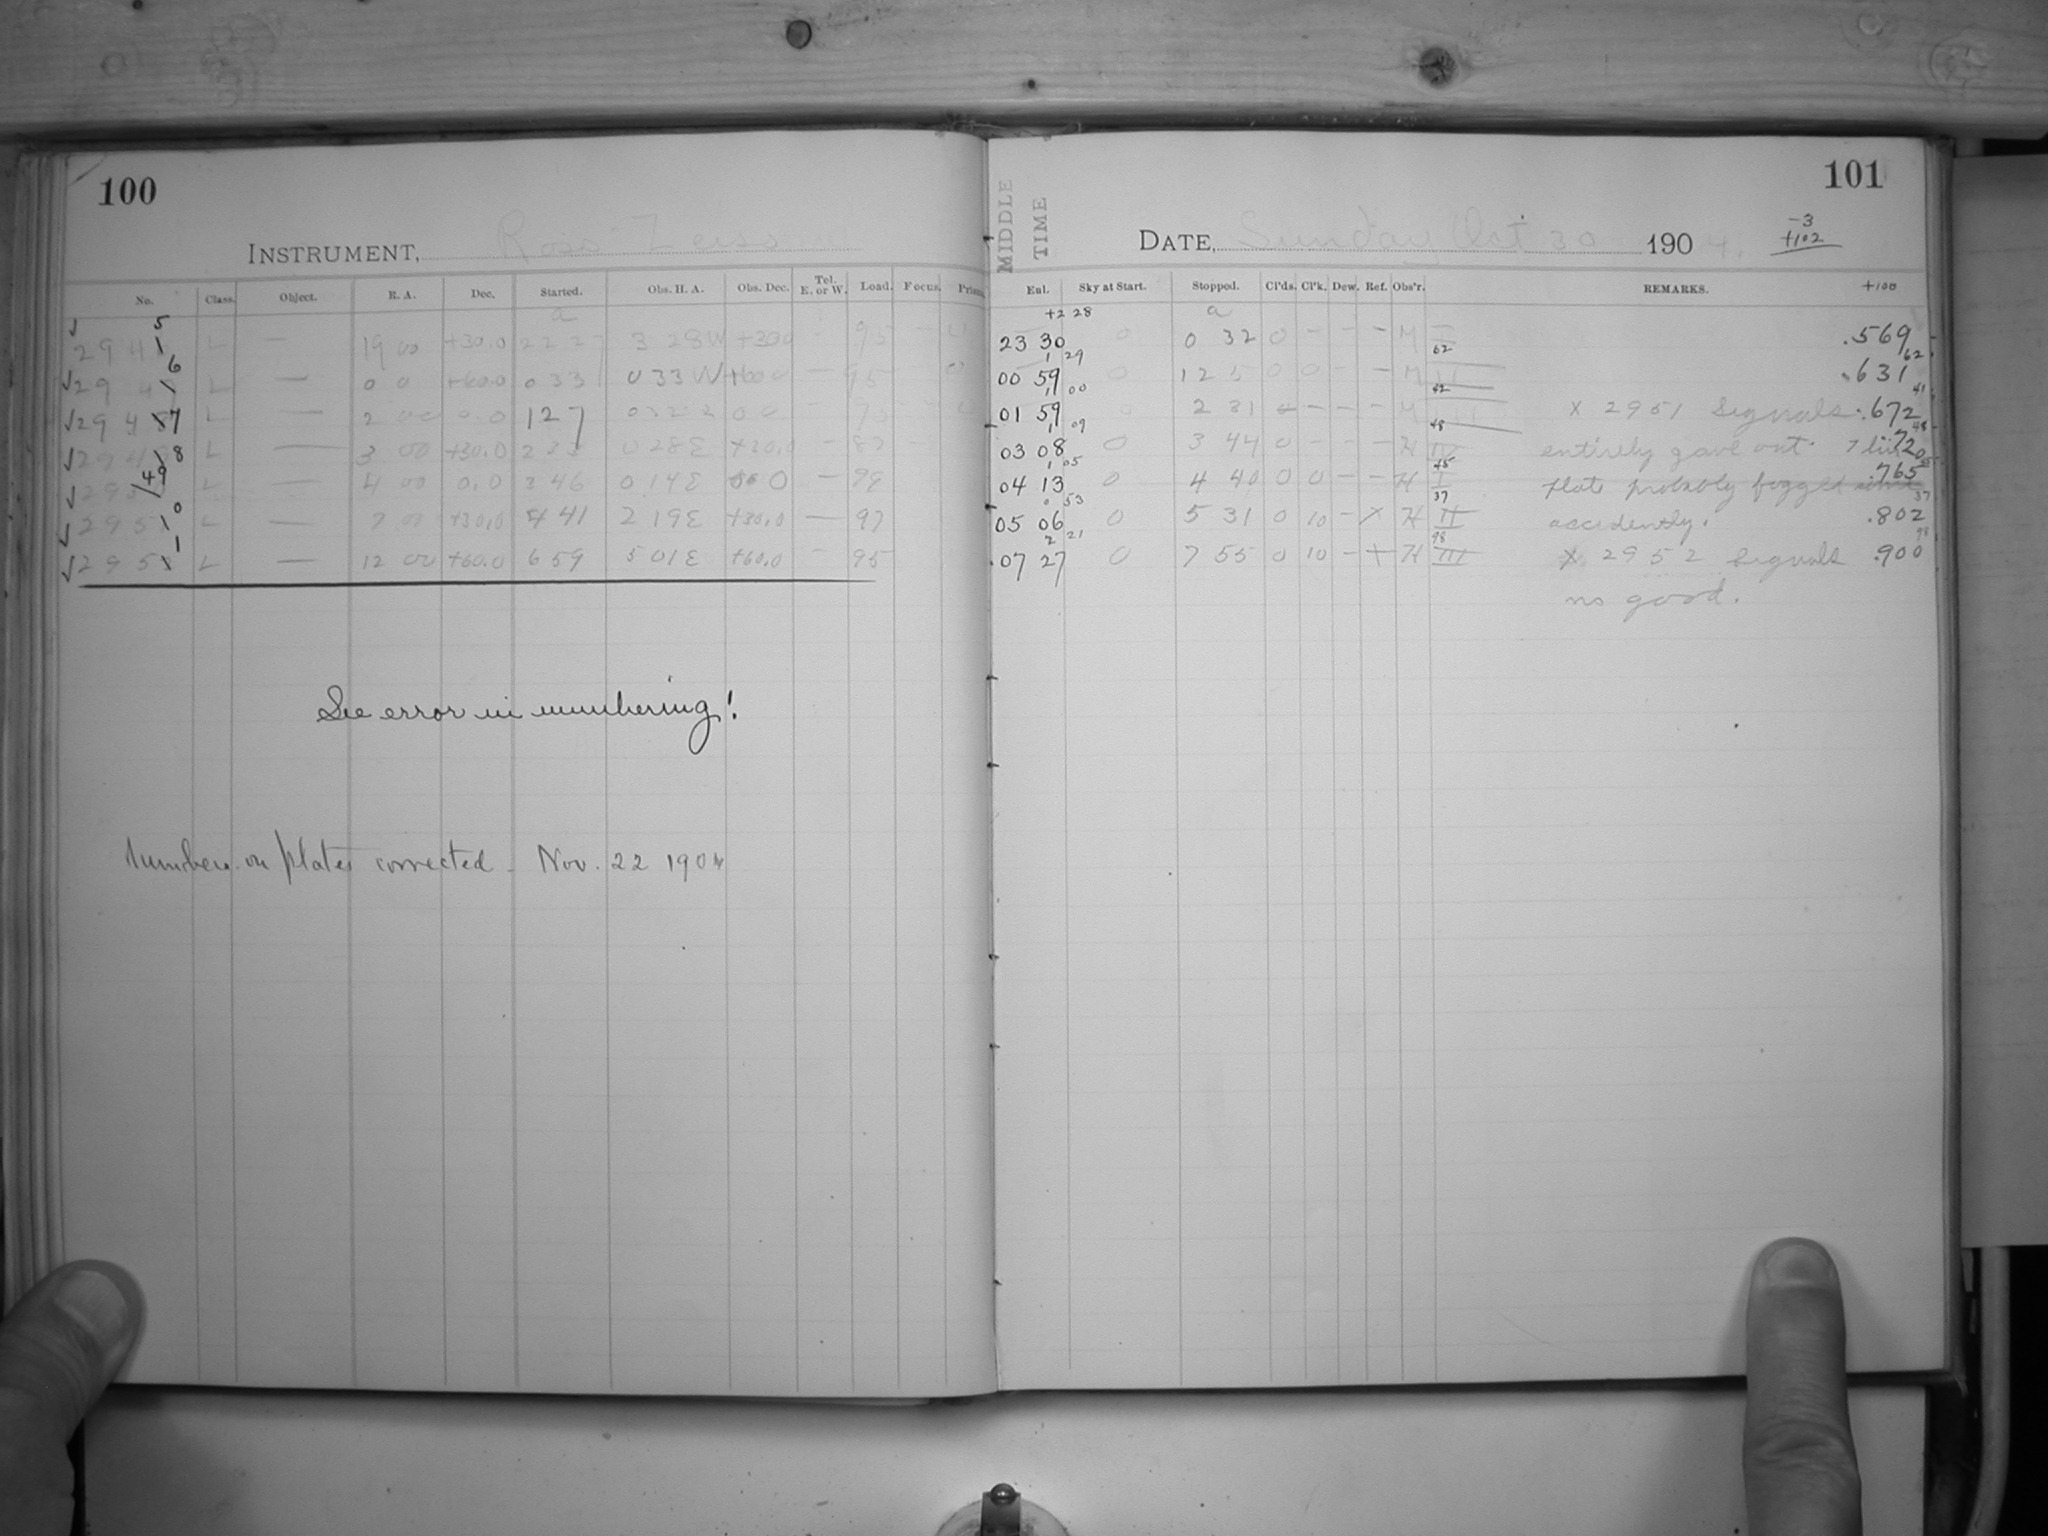 100
INSTRUMENT, Ross Zeiss
No. Class. Object. R. A. Dec. Started. Obs. H. A. Obs. Dec. Tel. E. or W. Load. Focus.
a
5
L — 19 00 +30.0 22 27 3 28W +300 — 95
6
L — 0 0 +60.0 0 33 0 33W +60 0 — 95
7
L — 2 00 0.0 1 27 0 0
8
L — 3 00 +30.0 0 28E +30.0 — 87
49
L — 4 00 0.0 3 46 0 14E 0 — 98
0
L — 7 00 +30.0 4 41 2 19E +30.0 — 97
1
L — 12 00 +60.0 6 59 5 01E +60.0 — 95
See error in numbering!
Numbers on plates corrected - Nov. 22 1904
101
MIDDLE TIME
DATE, Sunday Oct 30 1904.
-3
+102
Eul. Sky at Start. Stopped. Cl'ds. Cl'k. Dew. Ref. Obs'r. REMARKS. +100
+2 28 a
23 30 0 0 32 0 — — — M I .569
1 29 62 62
00 59 0 1 25 0 0 — — M II .631
1 00 42 41
01 59 0 2 31 0 — — — M III x 2951 Signals .672
1 09 48 48
03 08 0 3 44 0 — — — H IV entirely gave out.
1 05 45
04 13 0 4 40 0 0 — — H I plate probably fogged .765
0 53 37 37
05 06 0 5 31 0 10 — x H II accidently. .802
2 21 98 98
07 27 0 7 55 0 10 — + H III x 2952 signals .900
no good.